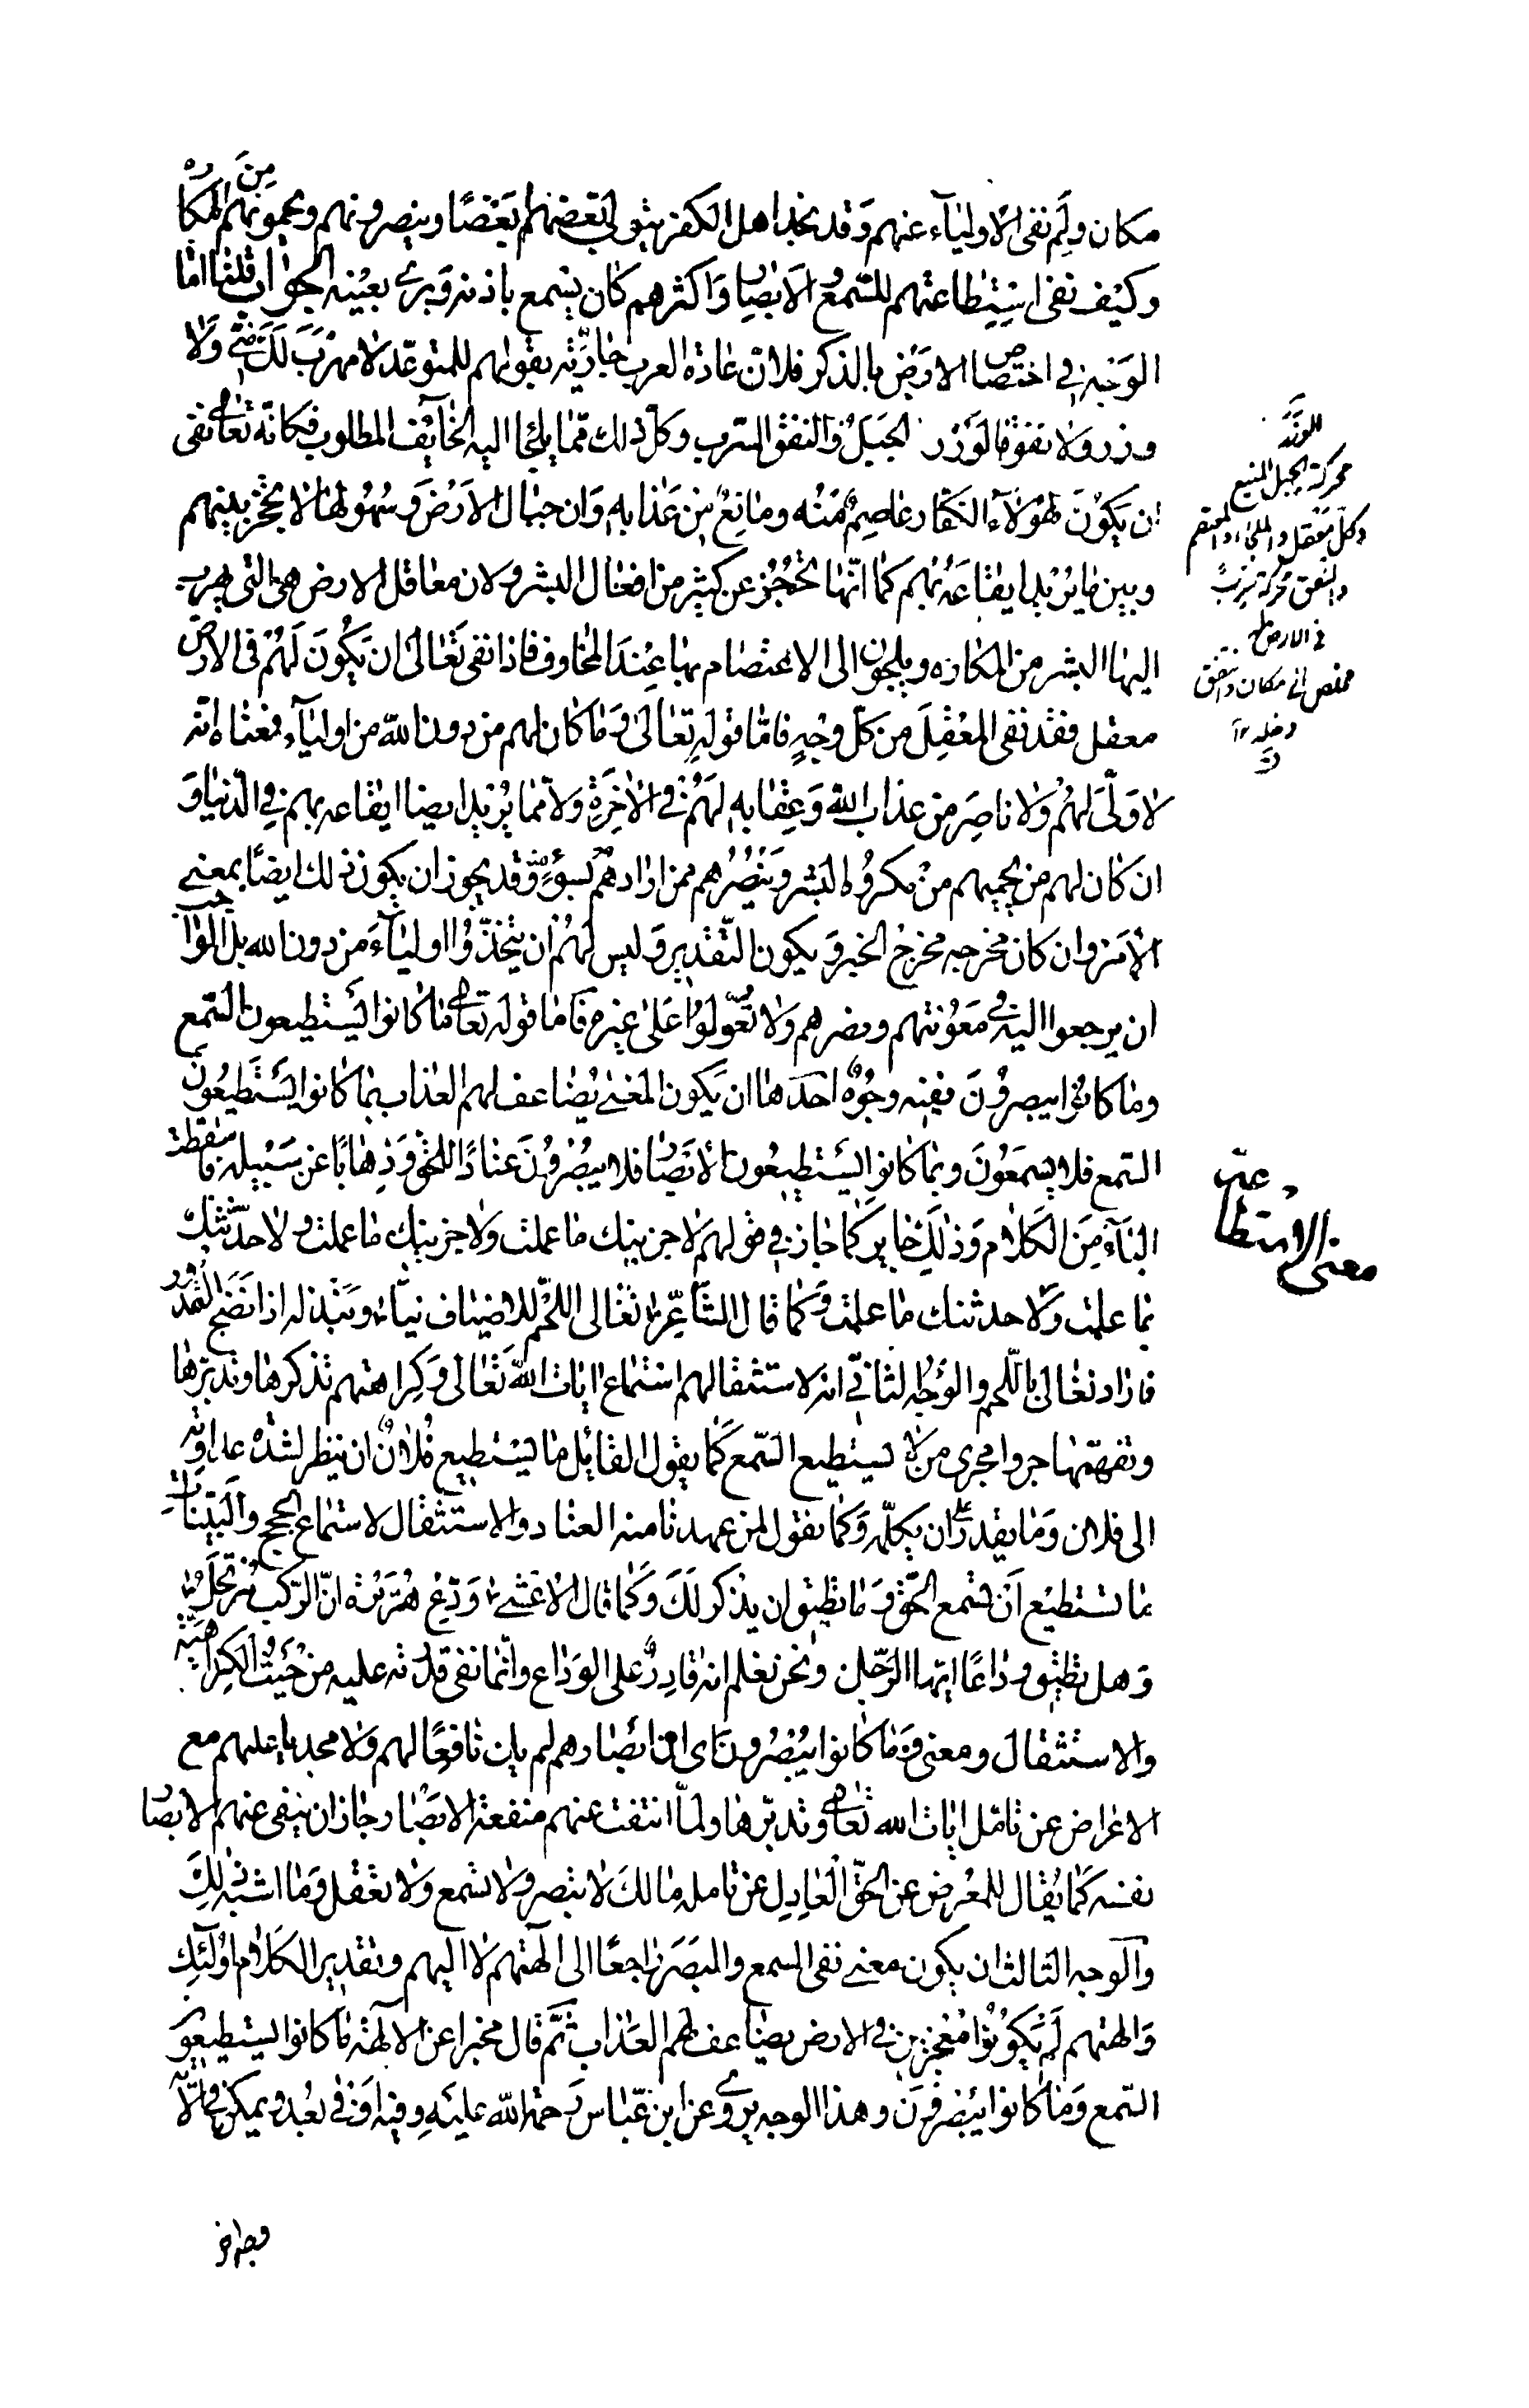 مكان ولم نفى الاولياء عنهم وقد نجد اهل الكفر يتولى بعضهم بعضا وينصرونهم ويحمونهم من المكاره
وكيف نفى استطاعتهم للسمع والابصار واكثرهم كان يسمع باذنه ويرى بعينه الجواب قلنا اما
الوجه فى اختصاص الارض بالذكر فلان عادة العرب جارية بقولهم للمتوعد لا مهرب لك منى ولا
وزر ولا نفق فالوزر الجبل والنفق السرب وكل ذلك مما يلجا اليه الخائف المطلوب فكانه تعالى نفى
ان يكون لهؤلاء الكفار عاصم منه ومانع من عذابه وان جبال الارض وسهولها لا يحجز بينهم
وبين ما يريد ايقاعه بهم كما انها تحجز عن كثير من افعال البشر ولان معاقل الارض هى التى يهرب
اليها البشر من المكاره ويلجؤن الى الاعتصام بها عند المخاوف فاذا نفى تعالى ان يكون لهم فى الارض
معقل فقد نفى المعقل من كل وجه فاما قوله تعالى وما كان لهم من دون الله من اولياء فمعناه انه
لا ولى لهم ولا ناصر من عذاب الله وعقابه لهم فى الاخرة ولا مما يريد ايضا ايقاعه بهم فى الدنيا و
ان كان لهم من يحميهم من مكروه البشر وينصرهم ممن ارادهم بسوء وقد يجوز ان يكون ذلك ايضا بمعنى
الامر وان كان مخرجه مخرج الخبر ويكون التقدير وليس لهم ان يتخذوا اولياء من دون الله بل الواجب
ان يرجعوا اليه فى معونتهم ونصرهم ولا يعولوا على غيره فاما قوله تعالى ما كانوا يستطيعون السمع
وما كانوا يبصرون ففيه وجوه احدها ان يكون المعنى يضاعف لهم العذاب بما كانوا يستطيعون
السمع فلا يسمعون وبما كانوا يستطيعون الابصار فلا يبصرون عنادا للحق وذهابا عن سبيله فاسقطت
الباء من الكلام وذلك جايز كما جاز فى قولهم لاجزينك ما عملت ولاجزينك بما عملت ولاحدثنك
بما علمت ولاحدثنك ما علمت وكما قال الشاعر نغالى اللحم للاضياف نيا ونبذله اذا نضج القدور
فاراد نغالى باللحم والوجه الثانى انه لاستثقالهم استماع ايات الله تعالى وكراهتهم تذكرها وتدبرها
وتفهمها جروا مجرى من لا يستطيع السمع كما يقول القائل ما يستطيع فلان ان ينظر لشدة عداوته
الى فلان وما يقدر على ان يكلمه وكما نقول لمن عهدنا منه العناد والاستثقال لاستماع الحجج والبينات
ما تستطيع ان تسمع الحق وما تطيق ان يذكر لك وكما قال الاعشى ودع هريرة ان الركب مرتحل
وهل تطيق وداعا ايها الرجل ونحن نعلم انه قادر على الوداع وانما نفى قدرته عليه من حيث الكراهية
والاستثقال ومعنى وما كانوا يبصرون اى ان ابصارهم لم يكن نافعا لهم ولا مجديا عليهم مع
الاعراض عن تامل ايات الله تعالى وتدبرها ولما انتفت عنهم منفعة الابصار جاز ان ينفى عنهم الابصار
نفسه كما يقال للمعرض عن الحق العادل عن تامله ما لك لا تبصر ولا تسمع ولا تعقل وما اشبه ذلك
والوجه الثالث ان يكون معنى نفى السمع والبصر راجعا الى الهتهم لا اليهم وتقدير الكلام اولئك
والهتهم لم يكونوا معجزين فى الارض يضاعف لهم العذاب ثم قال مخبرا عن الالهة ما كانوا يستطيعون
السمع وما كانوا يبصرون وهذا الوجه يروى عن ابن عباس رحمة الله عليه وفيه ادنى بعد ويمكن فى الآ
محركة الجبل المنيع
وكل معقل والملجاء والمعتصم
والنفق محركة سرب
فى الارض له
مخلص الى مكان وانتفق
دخله
معنى الاستطاعة